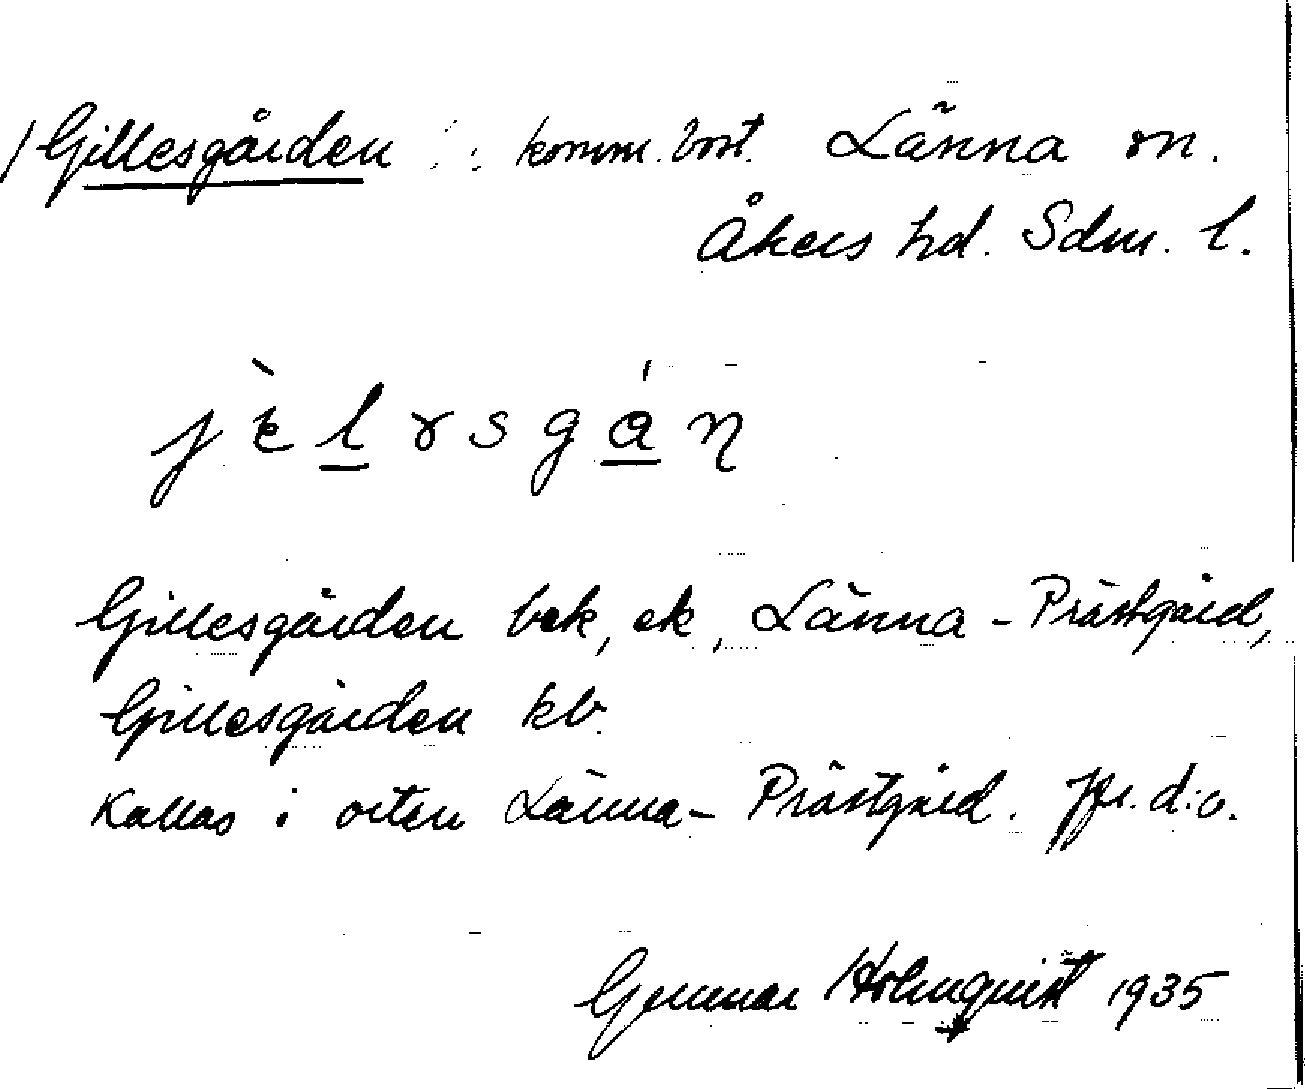 Gillesgården : komm. bost. Länna sn.
Åkers hd. Sdm. l.
Gillesgården bek, ek, Länna - Prästgård,
Gillesgården kb.
Kallas i orten Länna- Prästgård. Jfr. d:o.
Gunnar Holmquist 1935